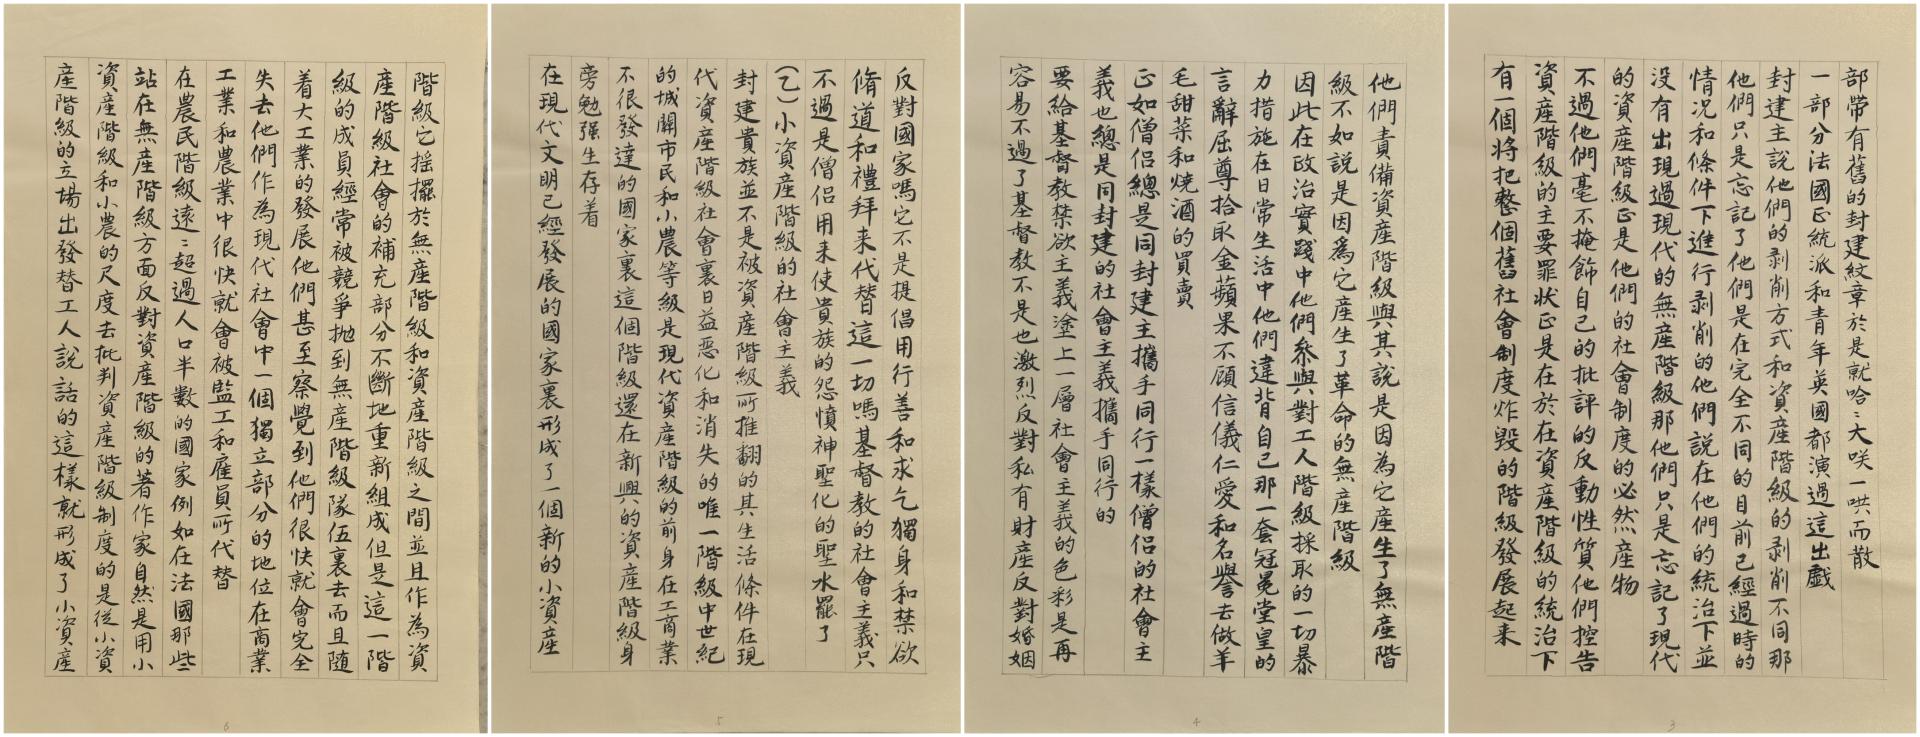 部帶有舊的封建紋章於是就哈〻大咲一哄而散
一部分法國正統派和青年英國都演過這出戲
封建主說他們的剥削方式和資産階級的剥削不同那
他們只是忘記了他們是在完全不同的目前已經過時的
情况和條件下進行剥削的他們説在他們的統治下並
没有出現過現代的無産階級那他們只是忘記了現代
的資産階級正是他們的社會制度的必然産物
不過他們毫不掩飾自己的批評的反動性質他們控告
資産階級的主要罪状正是在於在資産階級的統治下
有一個將把整個舊社會制度炸毀的階級發展起来
他們責備資産階級與其說是因為它産生了無産階
級不如說是因爲它産生了革命的無産階級
因此在政治實踐中他們參與對工人階級採取的一切暴
力措施在日常生活中他們違背自己那一套冠冕堂皇的
言辭屈尊拾取金蘋果不顧信儀仁愛和名譽去做羊
毛甜菜和燒酒的買賣
正如僧侣總是同封建主攜手同行一樣僧侣的社會主
義也總是同封建的社會主義攜手同行的
要給基督教禁欲主義塗上一層社會主義的色彩是再
容易不過了基督教不是也激烈反對私有財産反對婚姻
反對國家嗎它不是提倡用行善和求乞獨身和禁欲
脩道和禮拜来代替這一切嗎基督教的社會主義只
不過是僧侣用来使貴族的怨憤神聖化的聖水罷了
(乙)小資産階級的社會主義
封建貴族並不是被資産階級所推翻的其生活條件在現
代資産階級社會裏日益惡化和消失的唯一階級中世紀
的城關市民和小農等級是現代資産階級的前身在工商業
不很發達的國家裏這個階級還在新興的資産階級身
旁勉强生存着
在現代文明已經發展的國家裏形成了一個新的小資産
階級它摇擺於無産階級和資産階級之間並且作為資
産階級社會的補充部分不斷地重新組成但是這一階
級的成員經常被競爭抛到無産階級隊伍裏去而且随
着大工業的發展他們甚至察覺到他們很快就會完全
失去他們作為現代社會中一個獨立部分的地位在商業
工業和農業中很快就會被監工和雇員所代替
在農民階級遠〻超過人口半數的國家例如在法國那些
站在無産階級方面反對資産階級的著作家自然是用小
資産階級和小農的尺度去批判資産階級制度的是從小資
産階級的立場出發替工人說話的這樣就形成了小資産
3
4
5
6